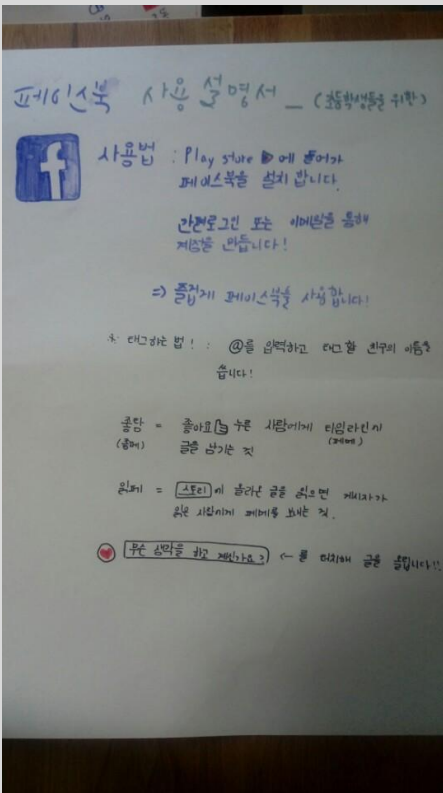 페이스북 사용 설명서 _ (초등학생들을 위한)
f
사용법 : Play store ▶ 에 들어가
페이스북을 설치 합니다.
간편로그인 또는 이메일을 통해
계정을 만듭니다!
=> 즐겁게 페이스북을 사용합니다!
※ 태그하는 법! : @를 입력하고 태그할 친구의 이름을
씁니다!
좋탐 = 좋아요 누른 사람에게 타임라인에
(좋페) 글을 남기는 것 (페메)
읽페 = 스토리 에 올라온 글을 읽으면 게시자가
읽은 사람에게 페메를 보내는 것.
무슨 생각을 하고 계신가요? ← 를 터치해 글을 올립니다!!